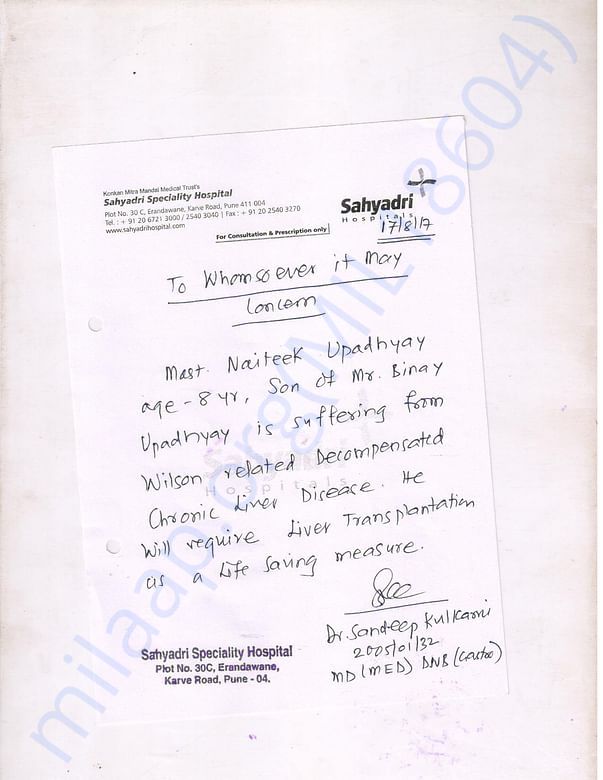 Konkan Mitra Mandal Medical Trust's
Sahyadri Speciality Hospital
Plot No. 30 C, Erandawane, Karve Road, Pune 411 004
Tel. : + 91 20 6721 3000 / 2540 3040 | Fax : + 91 20 2540 3270
www.sahyadrihospital.com
For Consultation & Prescription only
Sahyadri
Hospitals
17/8/17
To Whomsoever it May
Concern
Mast. Naiteek Upadhyay
age - 8 yr, Son of Mr. Binay
Upadhyay is suffering from
Wilson related Decompensated
Chronic Liver Disease. He
Will require Liver Transplantation
as a life saving measure.
Dr. Sandeep Kulkarni
2005/01/32
MD (MED) DNB (Gastro)
Sahyadri Speciality Hospital
Plot No. 30C, Erandawane,
Karve Road, Pune - 04.
Sahyadri
Hospitals